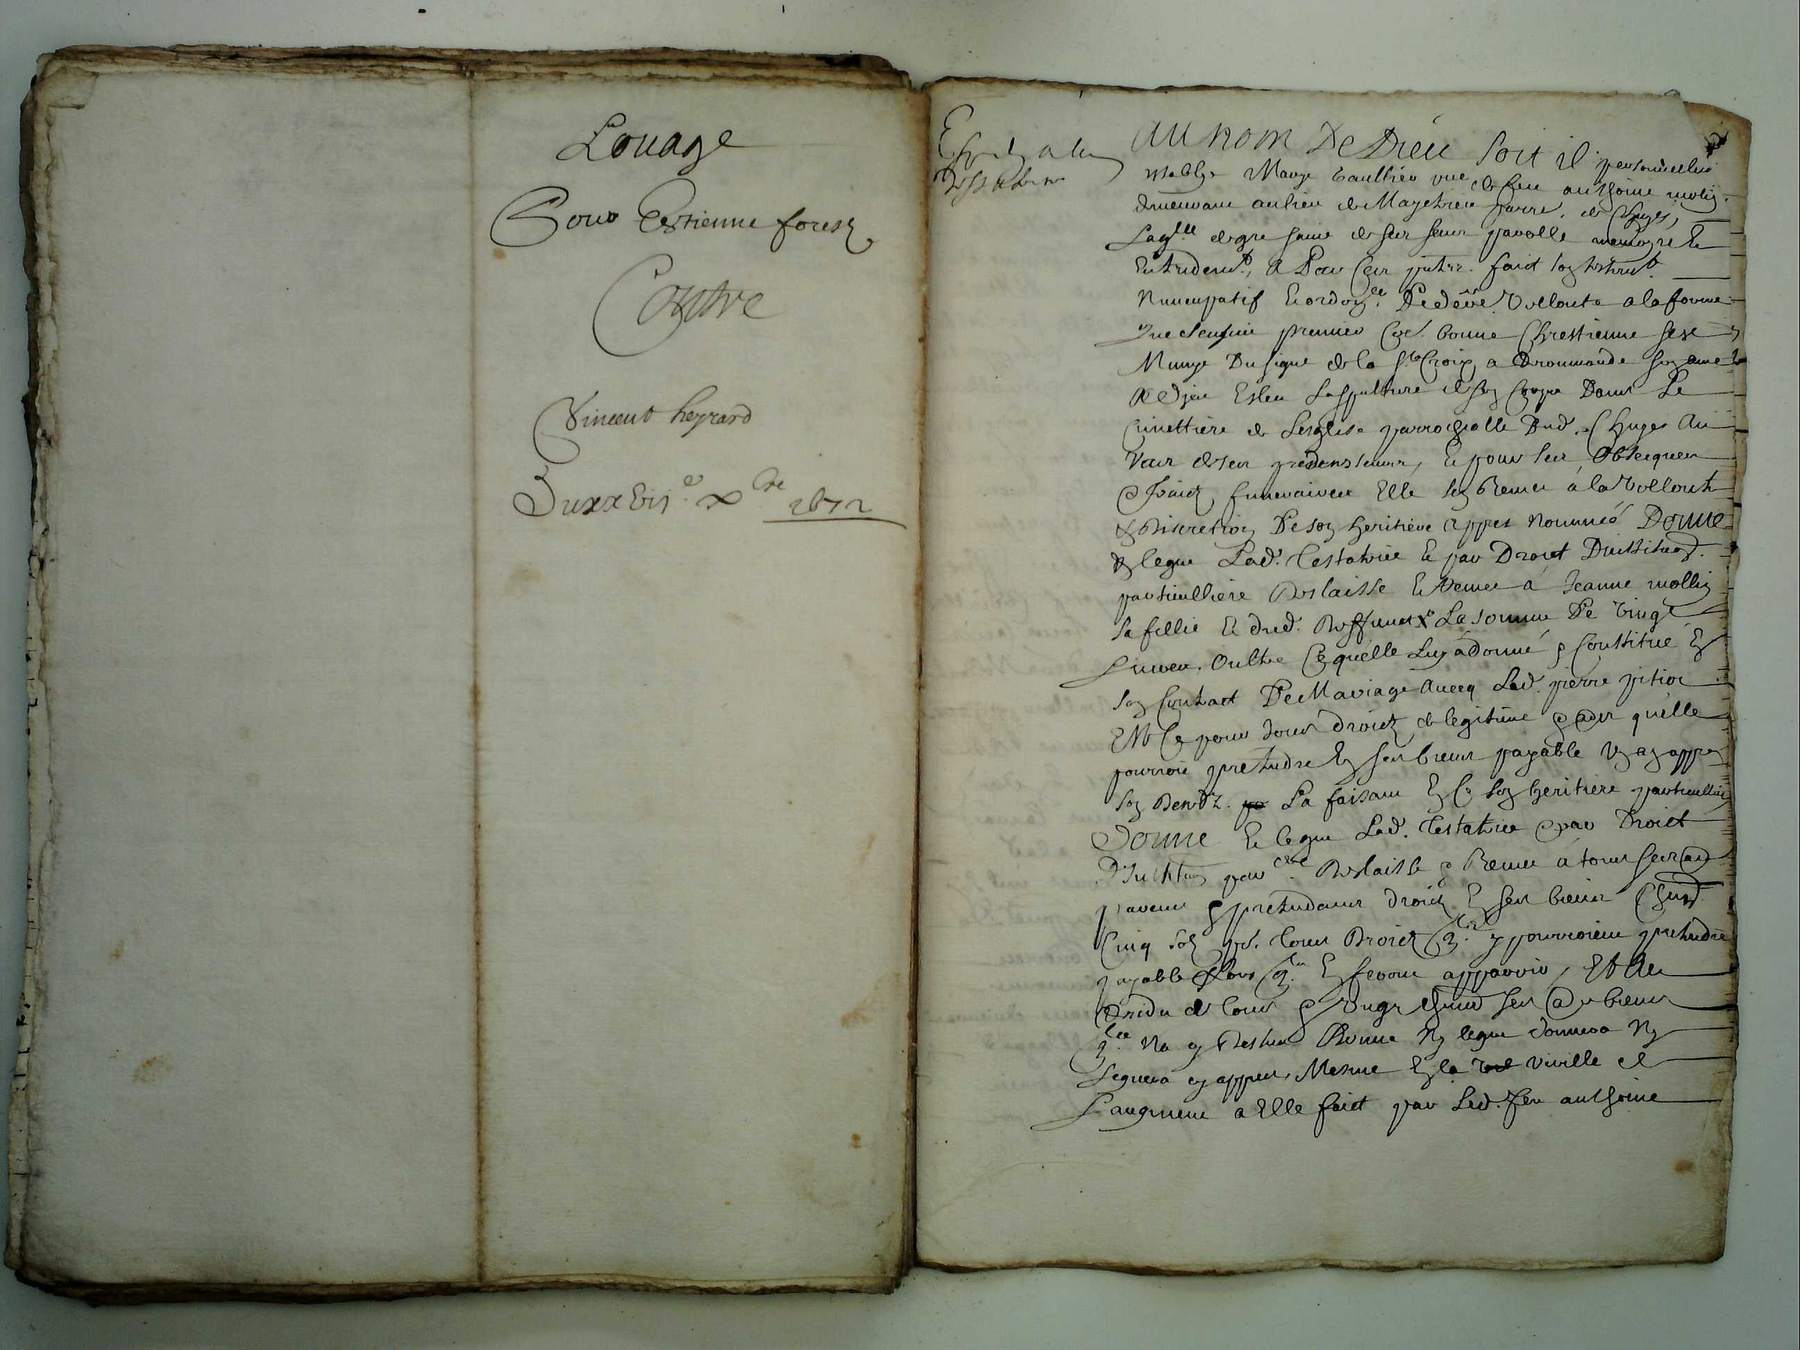 Louage
Pour Estienne forest
Contre
Vincent heyrard
Du xxvij.e xbre 1672
Au nom De Dieu soit il personnellem
establye Marye Gaulthier vve de feu anthoine molin
demeurant au lieu de parre. de Chuges,
Laqlle de gre saine de ses sens parolle memoyre Et
Entendemt, A Par Ces pntes faict son testamt
Nuncupatif Et ordonce De dere Vollonte a la forme
que sensuit premier Coe. bonne Chrestienne sest
Munye Du signe de la Ste Croix a Recommande son ame
A Dieu Esleu La sepulture de son Corps Dans Le
Cimettiere de Lesglise parrochialle Dud. Chuges Au
Vaze de ses predecesseurs, Et pour ses Obseques
& fraictz funeraires Elle sen Remet á la Vollonte
& Discretion De son heritiere appres Nommeé Donne
& legue Lad. Testatrice Et par Droict Dinstituon.
particulliere Deslaisse Et Remet á Jeanne mollin
sa fillie Et dud. La somme De Vingt
Livres. Oultre Ce quelle Luy á donné & Constitué En
son Contract De Mariage Avecq Led. pierre pitiot
Et Ce pour tous droictz de legitime & ader quelle
pourroit pretendre En ses biens payable Un an appres
son Decedz. La faisant En Ce son heritiere particulliere
Donne Et legue Lad. Testatrice & par Droict
D'Instituon parere. Deslaisse & Remet á tous ses
parens & pretendans droictz En ses biens
Cinq solz pr. tous Droictz q. y pourroient pretendre
payable Lors q. En feront apparoir, Et Au
Residu de tous & Ungs ses biens
q. Na cy Dessus Donne Ny legue donnera Ny
leguera cy appres, Mesme En la Viville et
Laugment a Elle faict par Led. feu anthoine